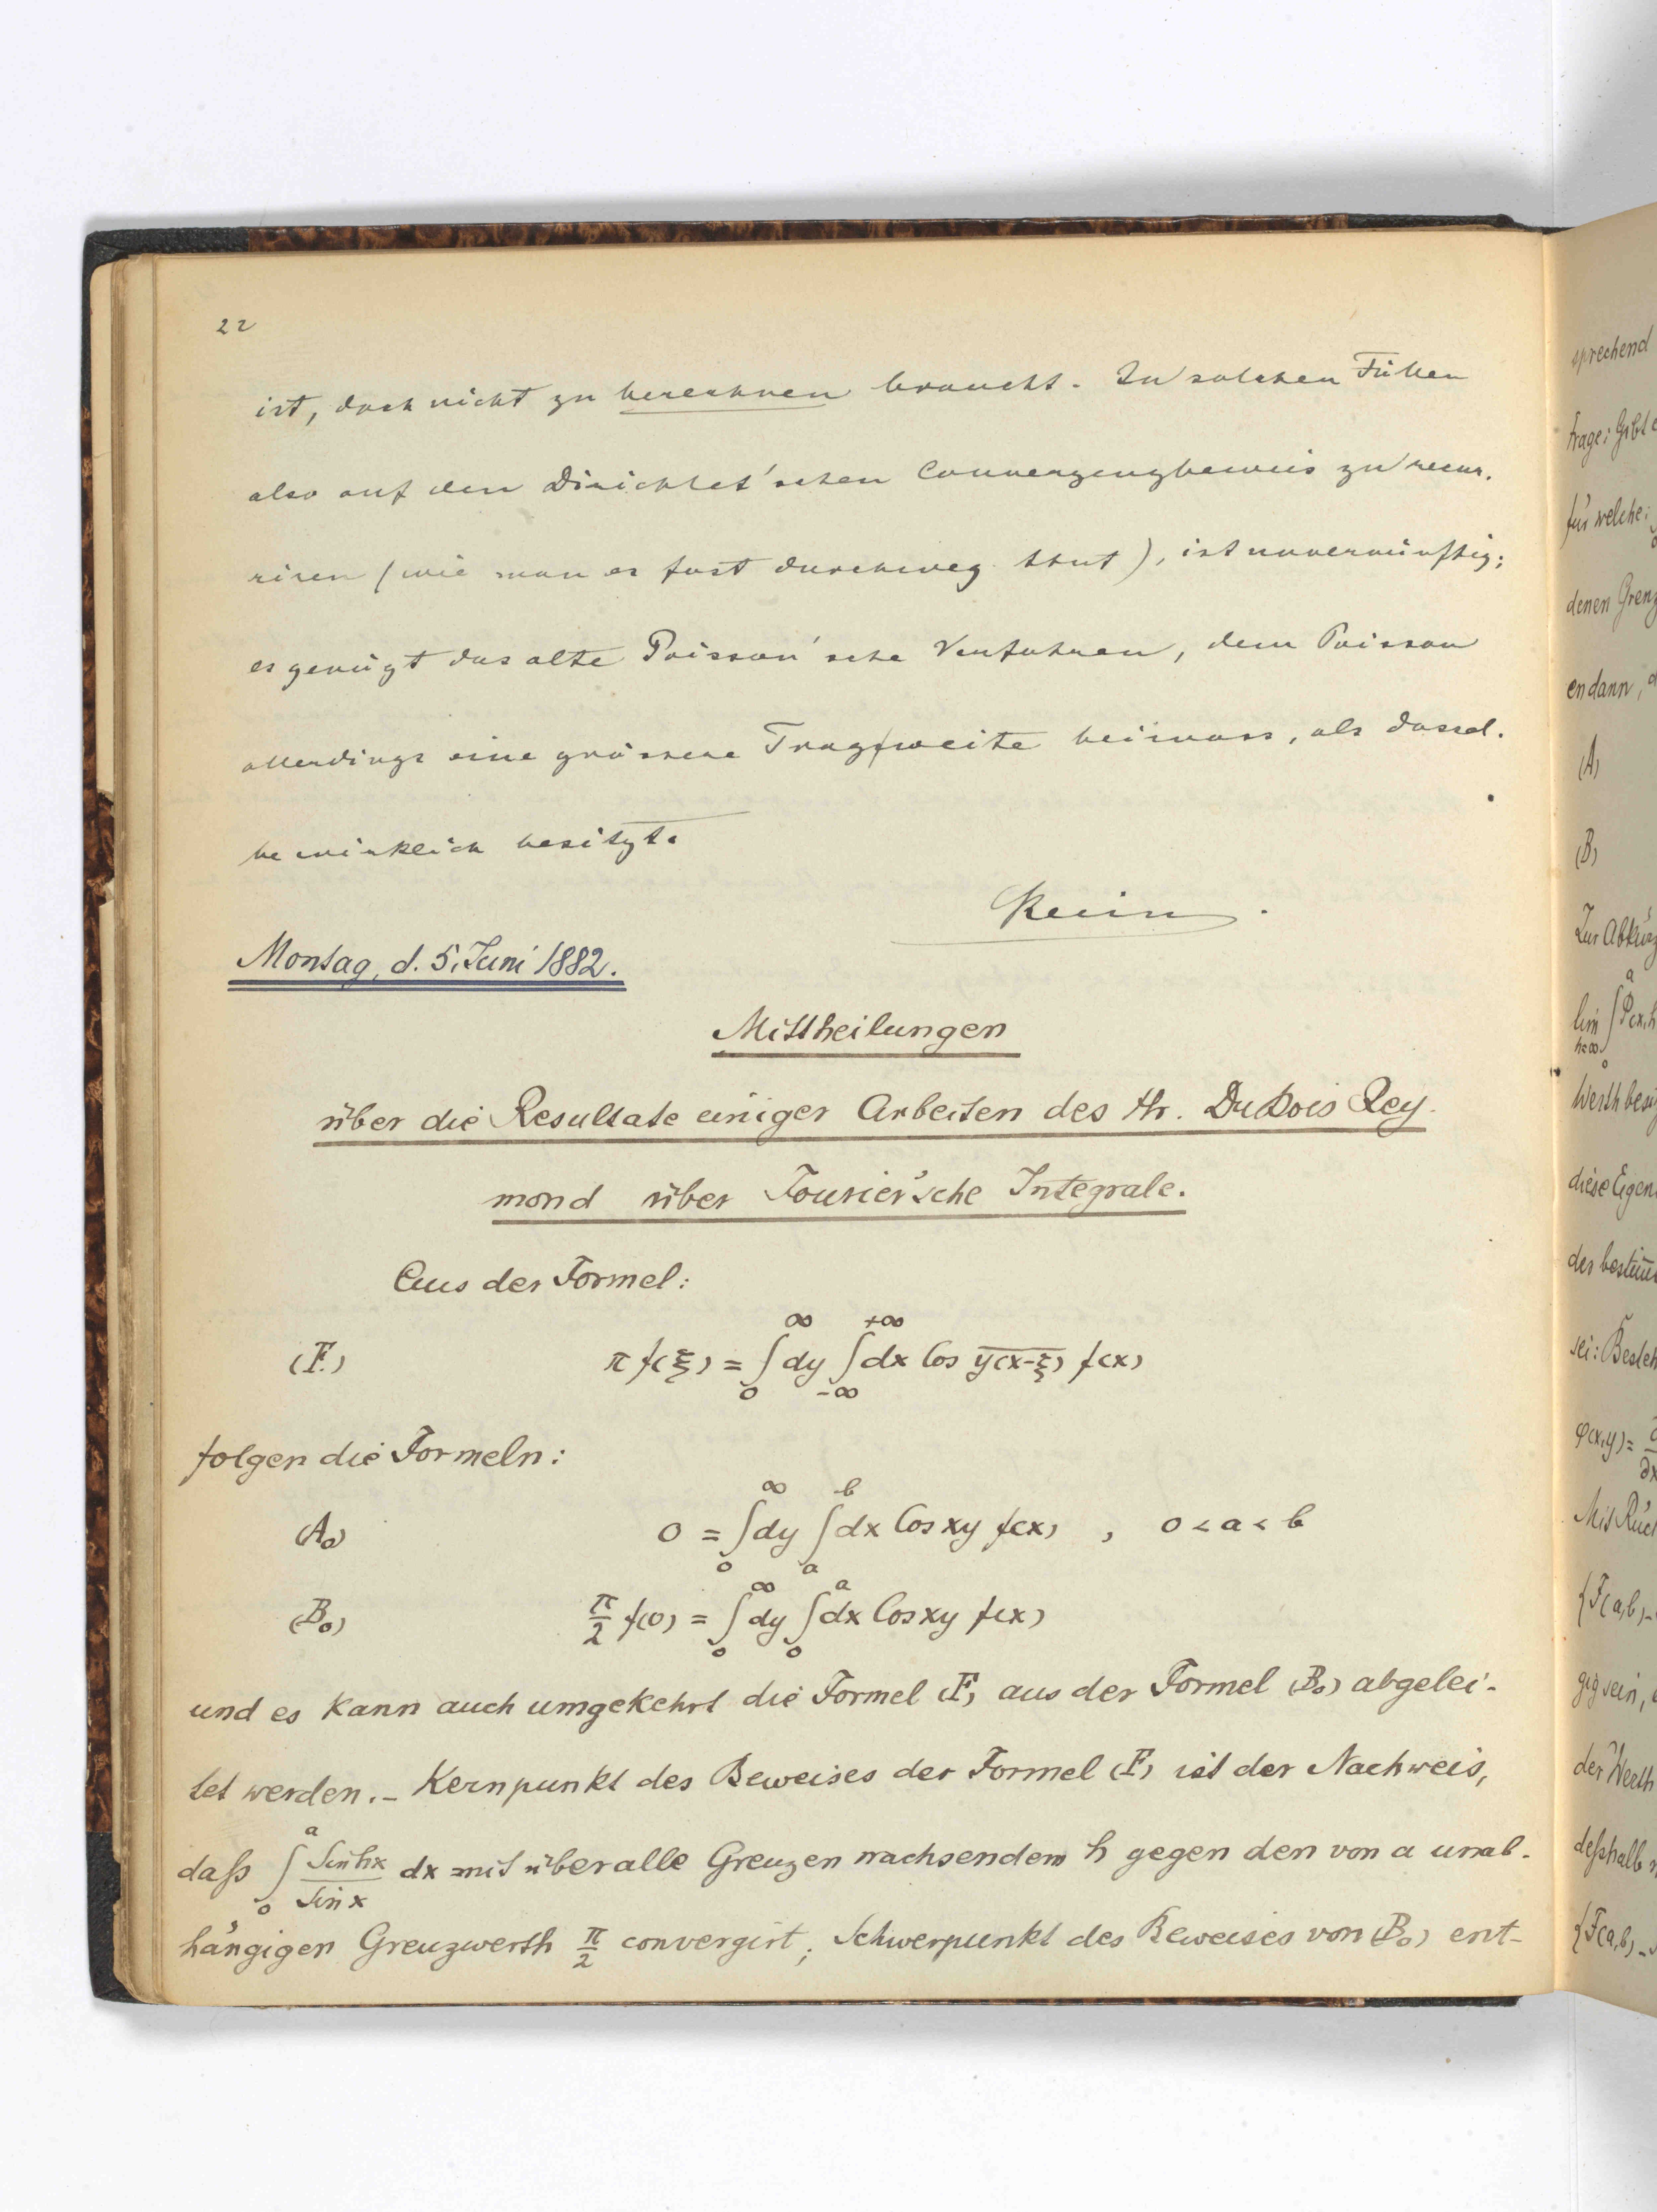 22
ist, doch nicht zu berechnen braucht. In solchen Fällen
also auf den Dirichlet'schen Convergenzbeweis zu recur-
riren (wie man es fast durchweg thut), ist unvernünftig;
es genügt das alte Poisson'sche Verfahren, dem Poisson
allerdings eine grössere Tragweite beimass, als dassel-
be wirklich besitzt.
Klein.
Montag, d. 5. Juni 1882.
Mittheilungen
über die Resultate einiger Arbeiten des Hr. DuBois Rey-
mond über Fourier'sche Integrale.
Aus der Formel:
(F.) π f(ξ) = ∫₀^∞ dy ∫₋∞^{+∞} dx Cos y(x-ξ) f(x)
folgen die Formeln:
(A₀) 0 = ∫₀^∞ dy ∫ₐ^b dx Cos xy f(x) , 0 < a < b
(B₀) π/2 f(0) = ∫₀^∞ dy ∫₀^a dx Cos xy f(x)
und es kann auch umgekehrt die Formel (F) aus der Formel (B₀) abgelei-
tet werden. – Kernpunkt des Beweises der Formel (F) ist der Nachweis,
daß ∫₀^a Sin hx / Sin x dx mit über alle Grenzen wachsendem h gegen den von a unab-
hängigen Grenzwerth π/2 convergirt; Schwerpunkt des Beweises von (B₀) ent-
sprechend
Frage: Gibt e
für welche:
denen Grenz
en dann, d
(A)
(B)
Zur Abkürz
lim ∫₀^a Φ(x,h
h=∞
Werth besi
diese Eigen
der bestim̄
sei: Besteh
φ(x,y) =
Mit Rück
{F(a,b)-
gig sein,
der Werth
deßhalb
{F(a,b)-